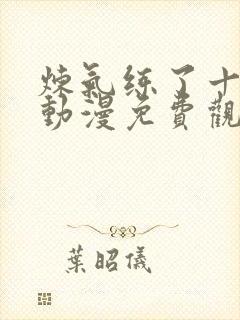 煉氣练了十
動漫免費觀
葉昭儀